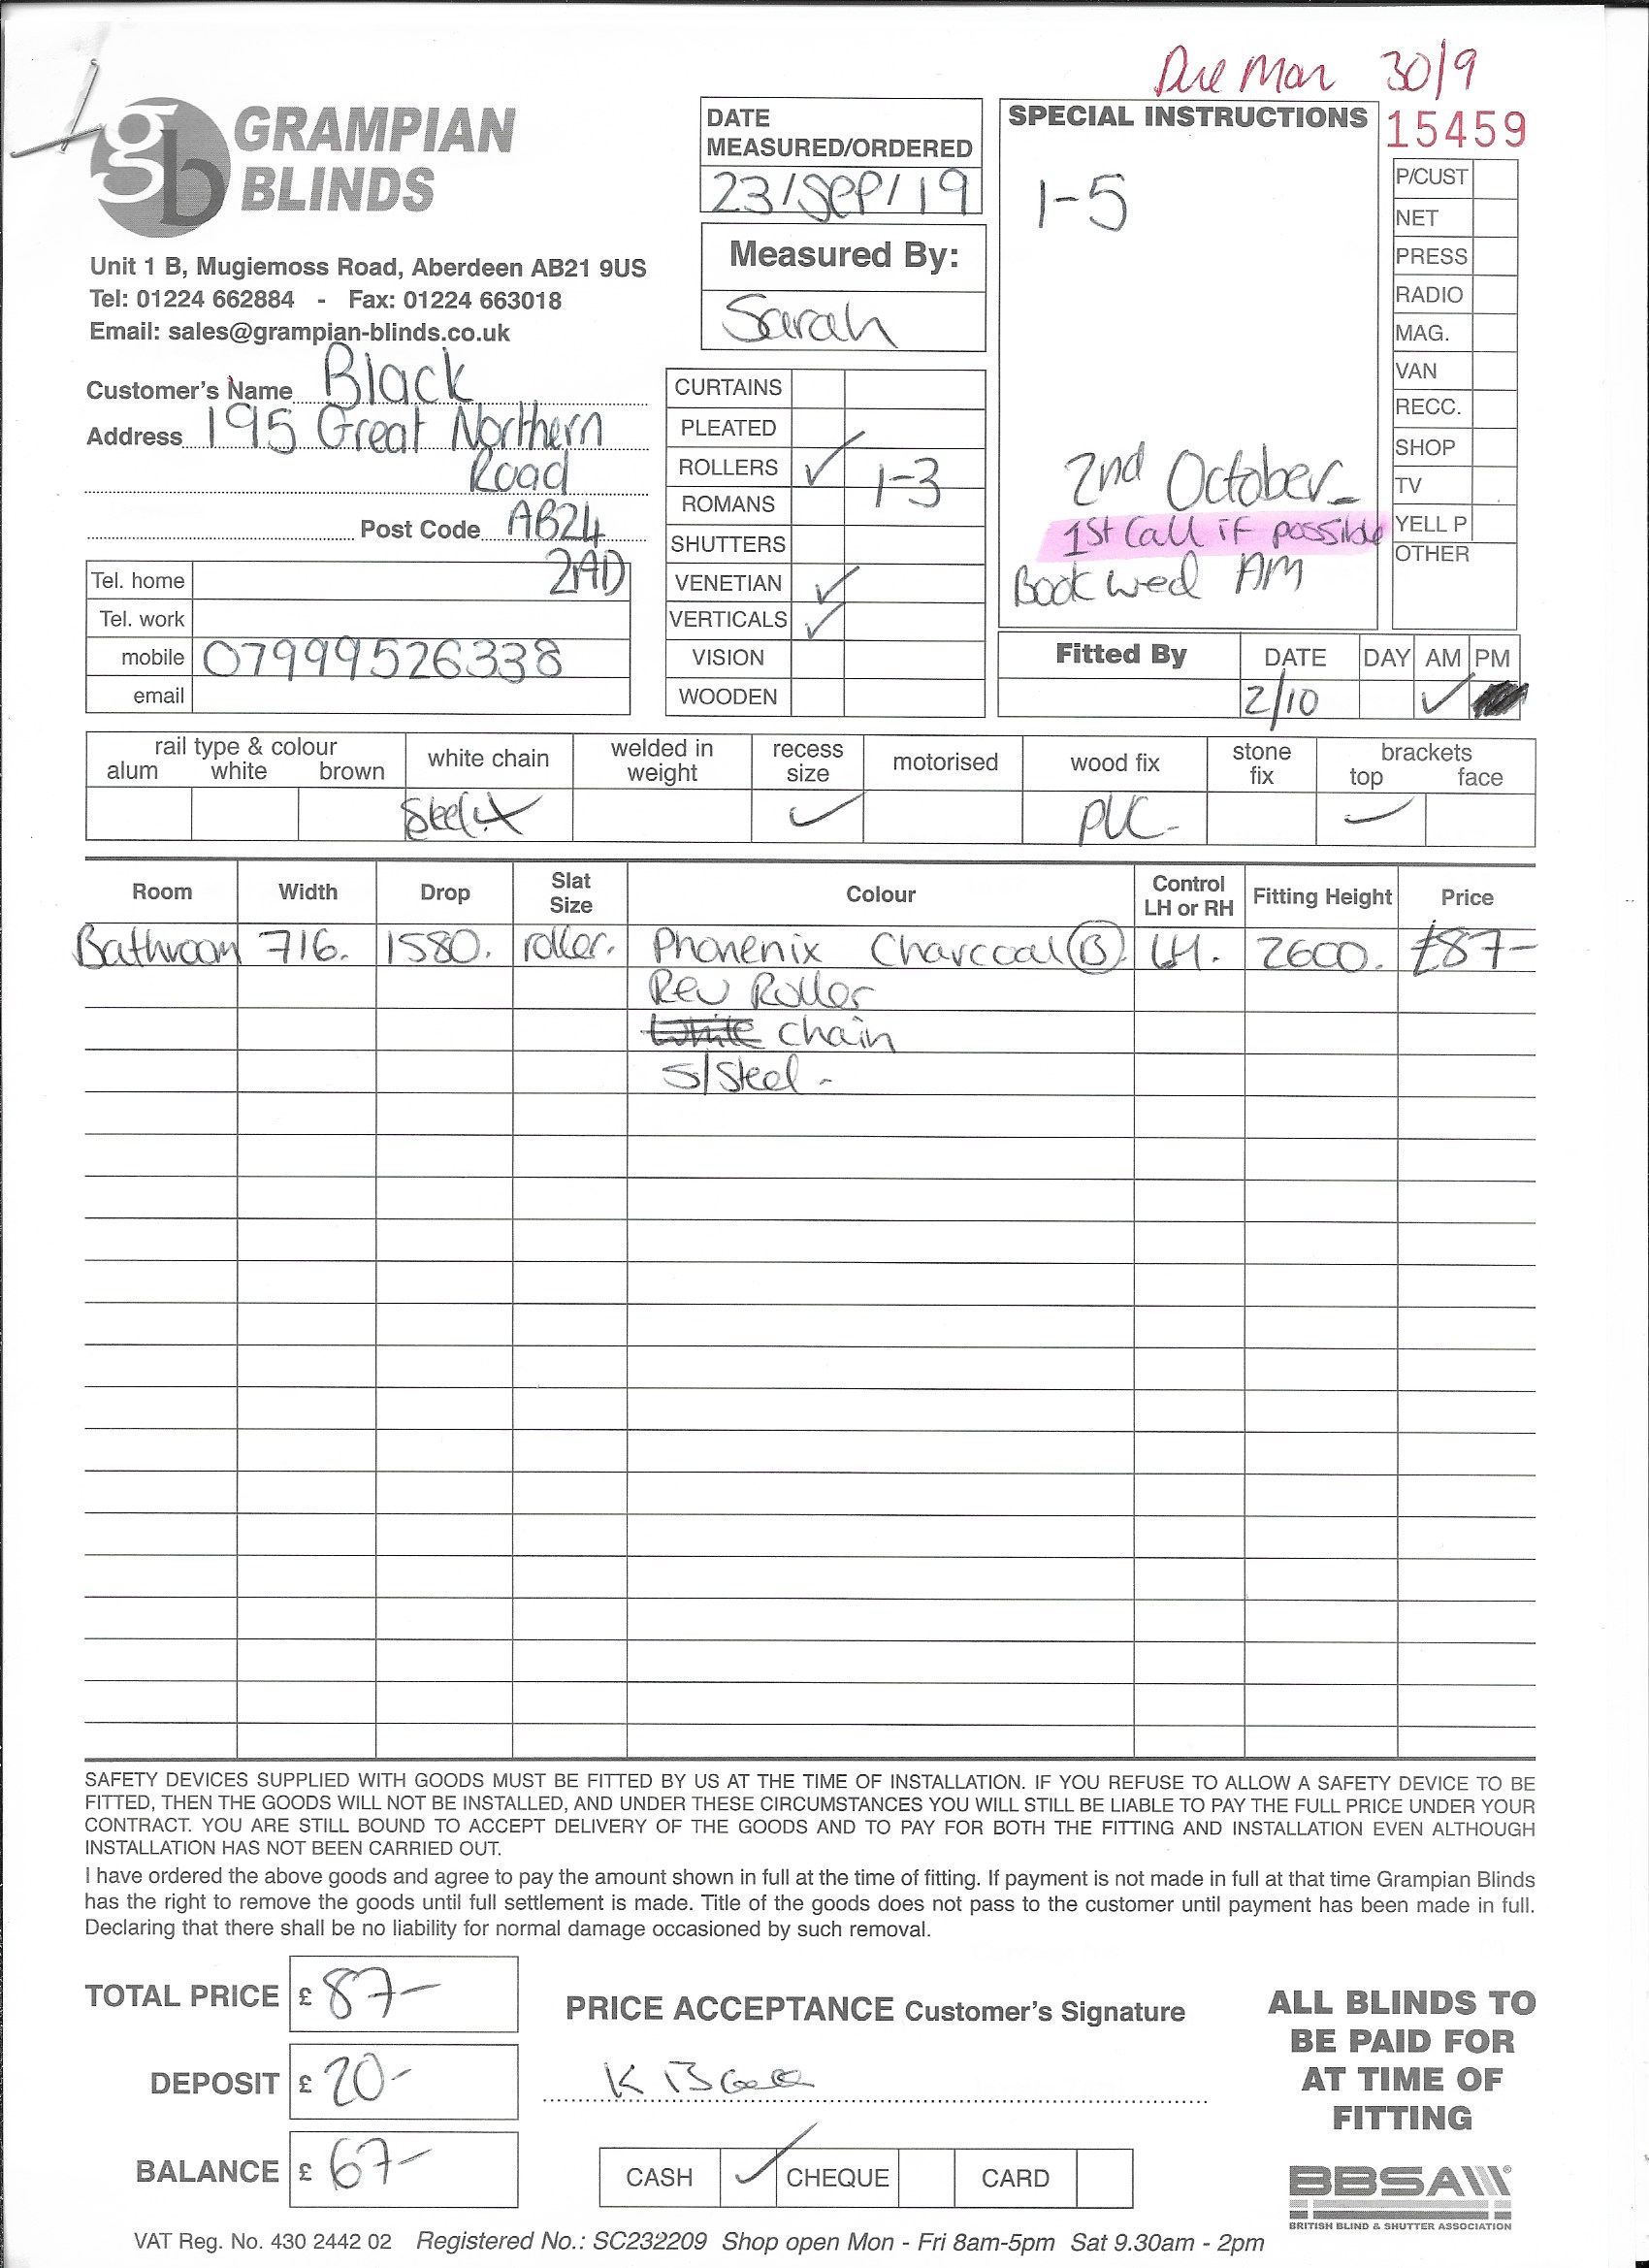 Due Mon 30/9
gb GRAMPIAN
BLINDS
Unit 1 B, Mugiemoss Road, Aberdeen AB21 9US
Tel: 01224 662884 - Fax: 01224 663018
Email: sales@grampian-blinds.co.uk
Customer's Name Black
Address 195 Great Northern
Road
Post Code AB24
2AD
Tel. home
Tel. work
mobile 07999526338
email
DATE
MEASURED/ORDERED
23/SEP/19
Measured By:
Sarah
CURTAINS
PLEATED
ROLLERS ✓ 1-3
ROMANS
SHUTTERS
VENETIAN ✓
VERTICALS ✓
VISION
WOODEN
SPECIAL INSTRUCTIONS
1-5
2nd October-
1st Call if possible
Book Wed AM
15459
P/CUST
NET
PRESS
RADIO
MAG.
VAN
RECC.
SHOP
TV
YELL P
OTHER
Fitted By DATE DAY AM PM
2/10 ✓
rail type & colour white chain welded in weight recess size motorised wood fix stone fix brackets
alum white brown top face
Steel ✓ PVC-
Room Width Drop Slat Size Colour Control LH or RH Fitting Height Price
Bathroom 716. 1580. roller. Phonenix Charcoal (B) LH. 2600. £87-
Rev Roller
White chain
S/Steel -
SAFETY DEVICES SUPPLIED WITH GOODS MUST BE FITTED BY US AT THE TIME OF INSTALLATION. IF YOU REFUSE TO ALLOW A SAFETY DEVICE TO BE
FITTED, THEN THE GOODS WILL NOT BE INSTALLED, AND UNDER THESE CIRCUMSTANCES YOU WILL STILL BE LIABLE TO PAY THE FULL PRICE UNDER YOUR
CONTRACT. YOU ARE STILL BOUND TO ACCEPT DELIVERY OF THE GOODS AND TO PAY FOR BOTH THE FITTING AND INSTALLATION EVEN ALTHOUGH
INSTALLATION HAS NOT BEEN CARRIED OUT.
I have ordered the above goods and agree to pay the amount shown in full at the time of fitting. If payment is not made in full at that time Grampian Blinds
has the right to remove the goods until full settlement is made. Title of the goods does not pass to the customer until payment has been made in full.
Declaring that there shall be no liability for normal damage occasioned by such removal.
TOTAL PRICE £ 87-
DEPOSIT £ 20-
BALANCE £ 67-
PRICE ACCEPTANCE Customer's Signature
CASH ✓ CHEQUE CARD
ALL BLINDS TO
BE PAID FOR
AT TIME OF
FITTING
BBSA
BRITISH BLIND & SHUTTER ASSOCIATION
VAT Reg. No. 430 2442 02 Registered No.: SC232209 Shop open Mon - Fri 8am-5pm Sat 9.30am - 2pm